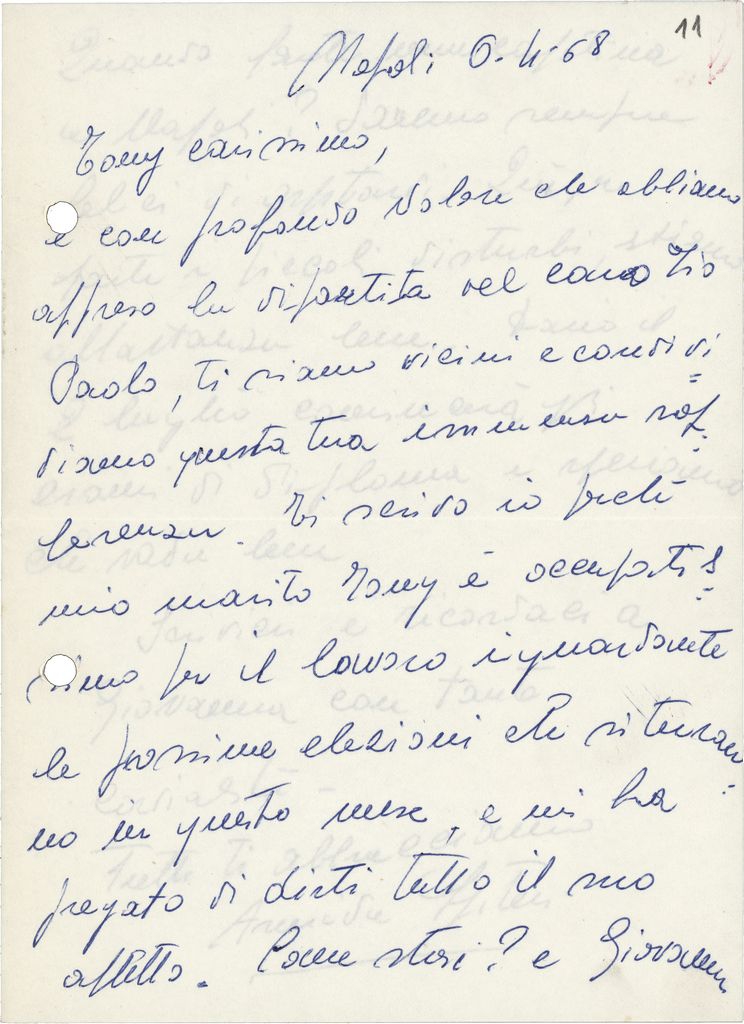 11
Napoli 6-4-68
Tony carissimo,
è con profondo dolore che abbiamo
appreso la dipartita del caro Zio
Paolo, ti siamo vicini e condivi=
diamo questa tua immensa sof=
ferenza. Ti scrivo io perchè
mio marito Tony è occupatis=
simo per il lavoro riguardante
le prossime elezioni che si terran=
no in questo mese, e mi ha
pregato di dirti tutto il suo
affetto. Come stai? e Giovanna